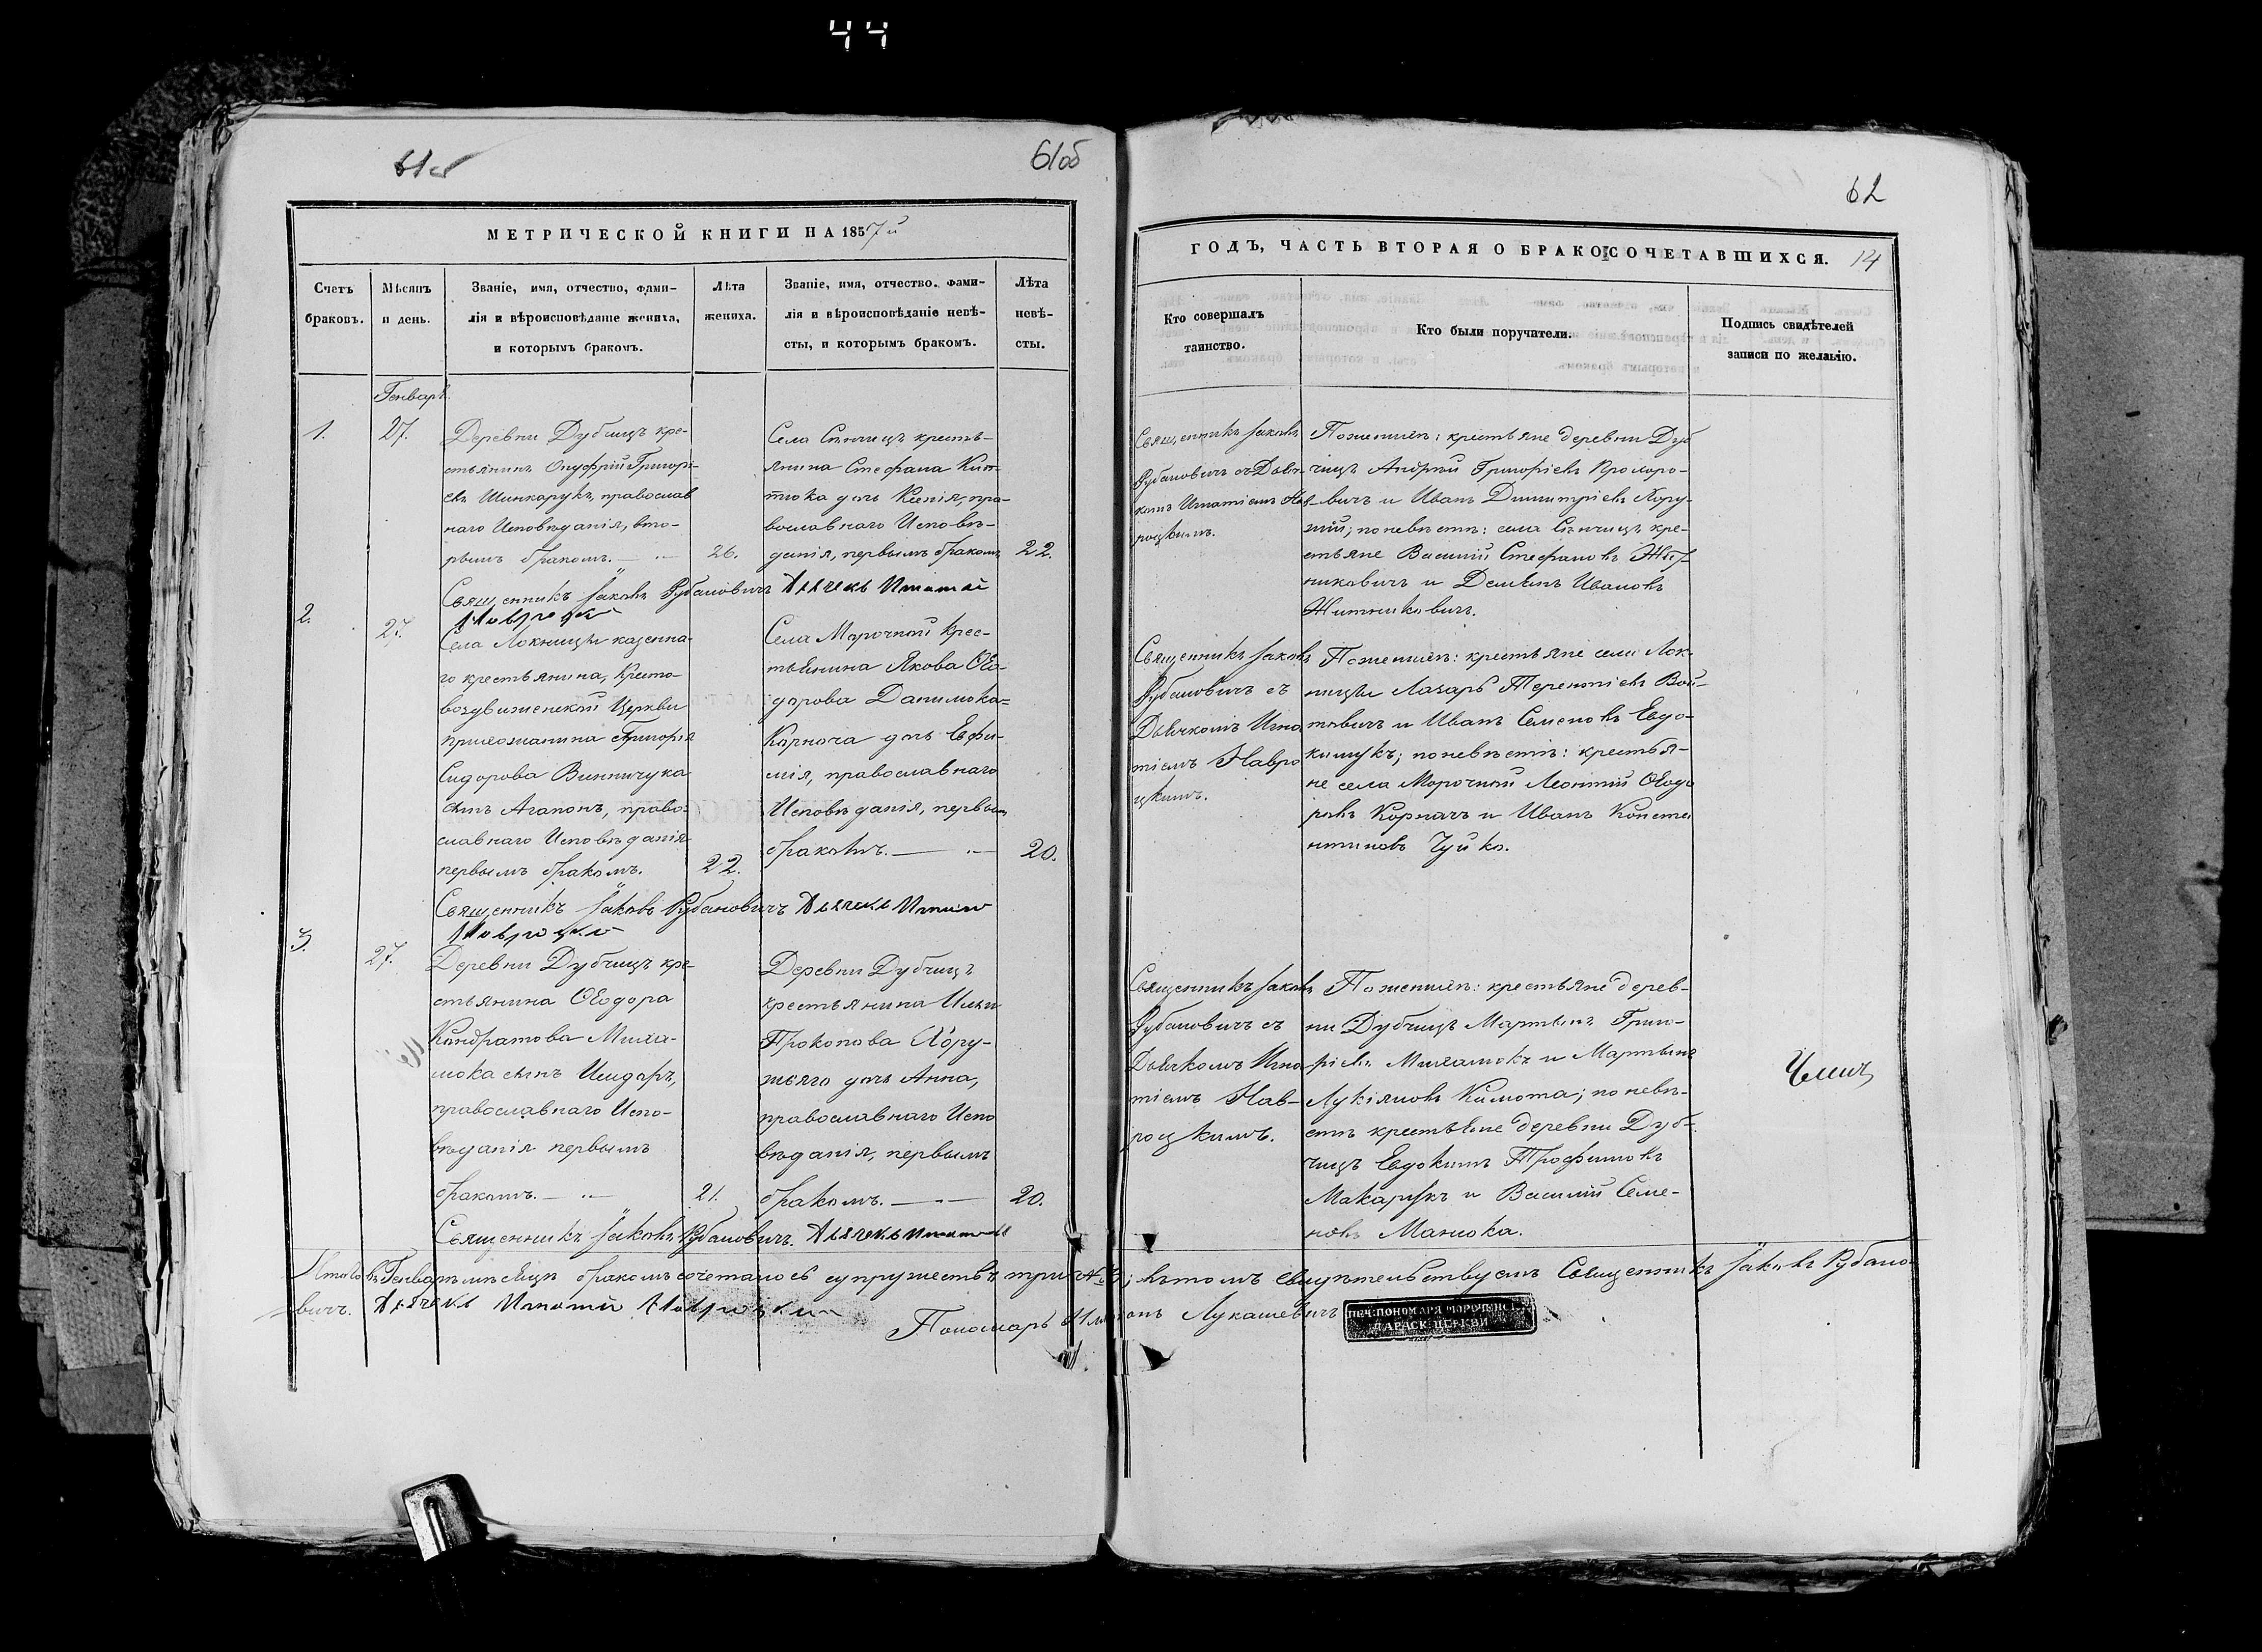 44
61об
62
МЕТРИЧЕСКОЙ КНИГИ НА 1857й
Счетъ браковъ.
Мѣсяцъ и день.
Званіе, имя, отчество, фами-
лія и вѣроисповѣданіе жениха,
и которымъ бракомъ.
Лѣта жениха.
Званіе, имя, отчество. фами-
лія и вѣроисповѣданіе невѣ-
сты, и которымъ бракомъ.
Лѣта невѣ-
сты.
Генварь.
1.
27.
Деревни Дубчицъ кре-
стьянинъ Онуфрій Григорі-
евъ Шинкарукъ, православ
наго Исповѣданія, вто-
рымъ бракомъ.
26.
Села Сѣнчицъ кресть-
янина Стефана
дочь Ксенія, пра-
вославнаго Исповѣ-
данія, первымъ бракомъ
22.
Священникъ Іаковъ Рубановичъ Дьячекъ Игнатій
Навроцкій
2.
27.
Села Локницы казенна-
го крестьянина, Кресто-
воздвиженской Церкви
прихожанина Григорія
Сидорова Винничука
сынъ Агапонъ, право-
славнаго Исповѣданія
первымъ бракомъ.
22.
Села Морочной крес-
тьянина Якова Ѳео-
дорова Данилюка-
Корпача дочь Евфи-
мія, православнаго
Исповѣданія, первым
бракомъ.
20.
Священникъ Іаковъ Рубановичъ Дьячекъ Игнатій
Навроцкій
3.
27.
Деревни Дубчицъ кре-
стьянина Ѳеодора
Кондратова Миха-
люка сынъ Исидоръ,
православнаго Испо-
вѣданія первымъ
бракомъ.
21.
Деревни Дубчицъ
крестьянина Ильи
Прокопова Хору-
жаго дочь Анна,
православнаго Испо
вѣданія, первымъ
бракомъ.
20.
Священникъ Іаковъ Рубановичъ. Дьячекъ Игнатій
ГОДЪ, ЧАСТЬ ВТОРАЯ О БРАКОСОЧЕТАВШИХСЯ. 14
Кто совершалъ
таинство.
Кто были поручители.
Подпись свидѣтелей
записи по желанію.
Священникъ Іаковъ
Рубановичъ съ Дьяч-
комъ Игнатіемъ Нав-
роцкимъ.
По женихѣ: крестьяне деревни Дуб
чицъ Андрей Григоріевъ Прохоро-
вичъ и Иванъ Димитріевъ Хору-
жій; по невѣстѣ: села Сѣнчицъ кре-
стьяне Василій Стефановъ Жит-
никовичъ и Демьянъ Ивановъ
Житниковичъ.
Священникъ Іаковъ
Рубановичъ съ
Дьячкомъ Игна
тіемъ Навро
цкимъ.
По женихѣ: крестьяне села Лок-
ницы Лазарь Терентіевъ Вой-
товичъ и Иванъ Семеновъ Евдо-
кимукъ; по невѣстѣ: крестья-
не села Морочной Леонтій Ѳеодо
ровъ Корпачъ и Иванъ Конста
нтиновъ Чуйко.
Священникъ Іаковъ
Рубановичъ съ
Дьячкомъ Игна
тіемъ Нав-
роцкимъ.
По женихѣ: крестьяне дерев-
ни Дубчицъ Мартынъ Григо-
ріевъ Михалюкъ и Мартынъ
Лукіяновъ Кимота; по невѣ-
стѣ крестьяне деревни Дуб-
чицъ Евдокимъ Трофимовъ
Макарукъ и Василій Семе-
новъ Манюка.
Итого въ Генварѣ мѣсяцѣ бракомъ сочеталось супружествъ три №3; въ томъ свидѣтельствуемъ Священникъ Іаковъ Рубано-
вичъ. Дьячекъ Игнатій Навроцкій
Пономарь Лукашевичъ
ПЕЧ: ПОНОМАРЯ МОРОЧЕНС:
ПАРАСК. ЦЕРКВИ